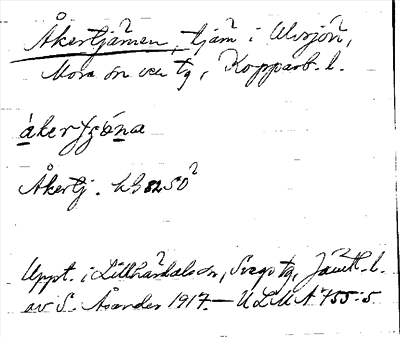 Åkertjärnen, tjärn i Alvsjön,
Mora sn och tg, Kopparb. l.
åkertjǫ́na
Åkertj. LG 82 SO
Uppt. i Lillhärdals sn, Svegs tg, Jämtl. l.
av S. Åsander 1917. — ULMA 755:5